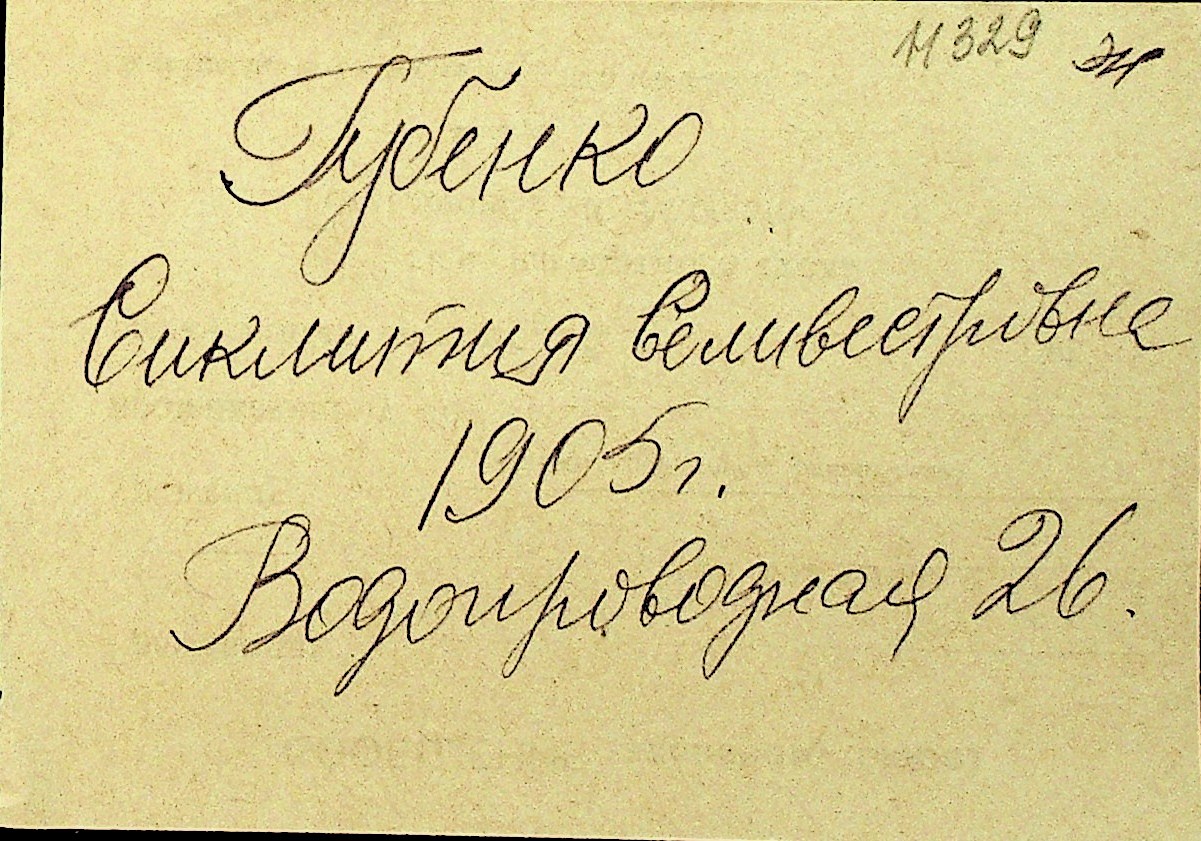 11329
Губенко
Сиклития Селивестровна
1905 г.
Водопроводная 26.